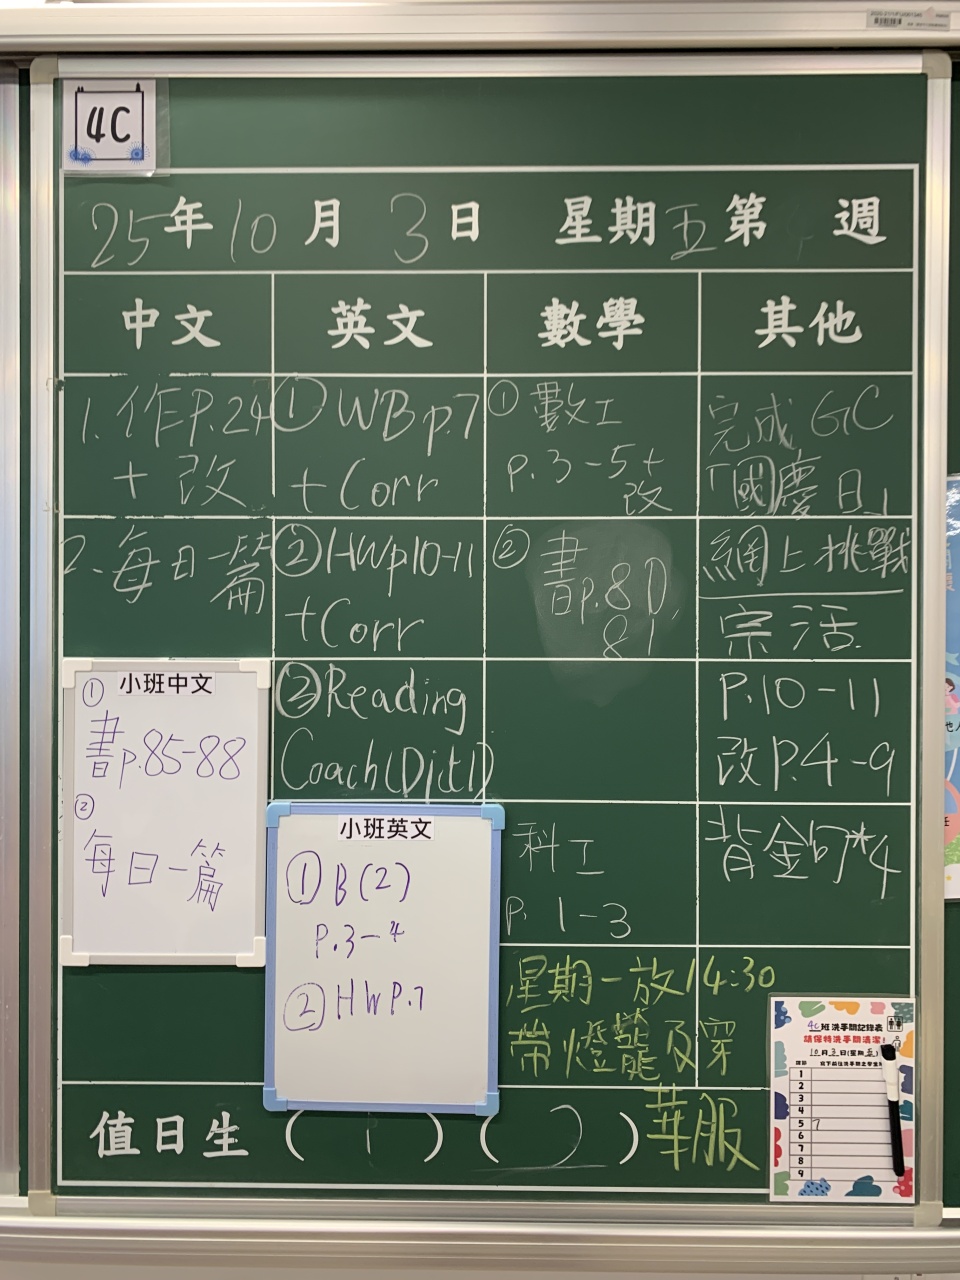 4C
25年10月3日 星期五第 週
中文 英文 數學 其他
1.作P.24
+改
2.每日一篇
小班中文
①
書p.85-88
②
每日一篇
①WBp.7
+Corr
②HWp10-11
+Corr
③Reading
Coach(Dict1)
小班英文
①B(2)
P.3-4
②HWP.7
①數工
p.3-5+
改
②書p.80,
81
科工
P.1-3
完成GC
「國慶日」
網上挑戰
宗活
P.10-11
改P.4-9
背金句*4
星期一放14:30
帶燈籠及穿
華服
值日生(1)(2)
4C班洗手間記錄表
請保持洗手間清潔!
10月3日(星期五)
1
2
3
4
5 7
6
7
8
9